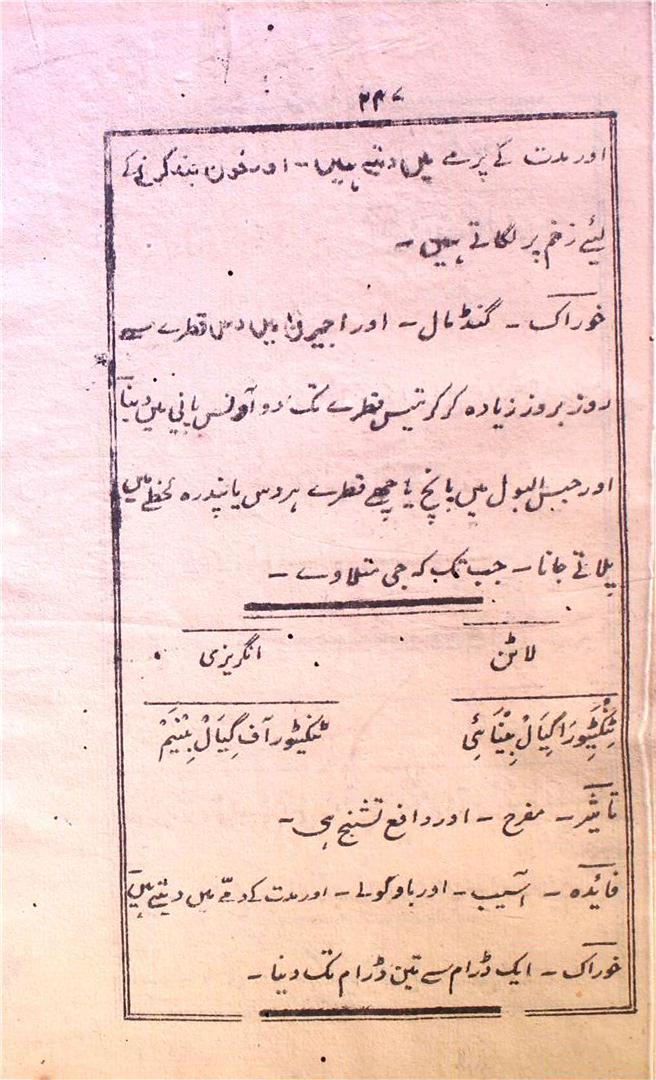 ۲۴۷
اور مدت کے پرمے میں دیتے ہیں - اور خون بند کرنے کے
لیئے زخم پر لگاتے ہیں -
خوراک - گنڈمال - اور اجیرن میں دس قطرے سے
روز بروز زیادہ کر کر تیس قطرے تک دو آونس پانی میں دینا
اور حبس البول میں پانچ یا چھے قطرے ہر دس یا پندرہ لحظے میں
پلاتے جانا - جب تک کہ جی متلاوے -
لاٹن
انگریزی
ٹِنْکٹِیُورَا گِیَالْ بِیْنَائِی
ٹنکٹیور آف گِیَالْ بِیْنَیم
تاثیر - مفرح - اور دافع تشنج ہی -
فائدہ - آسیب - اور باوگولے - اور مدت کے دمّے میں دیتے ہیں
خوراک - ایک ڈرام سے تین ڈرام تک دینا -